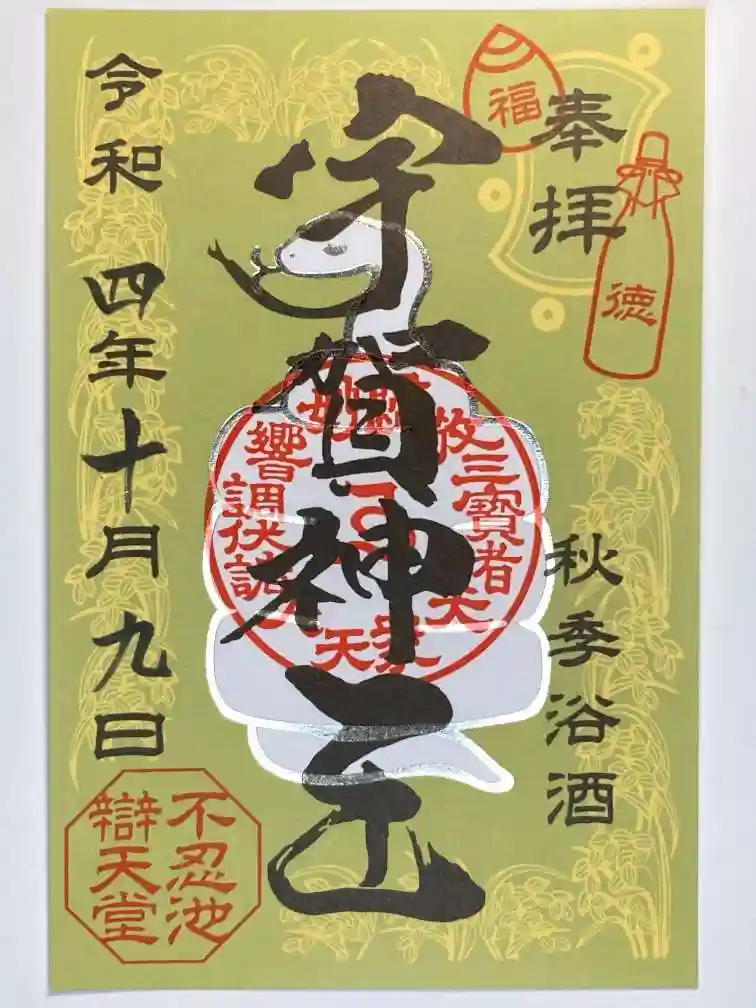 奉拝
福
徳
秋季浴酒
宇賀神王
令和四年十月九日
不忍池
辯天堂
三寶者
響
調伏
天